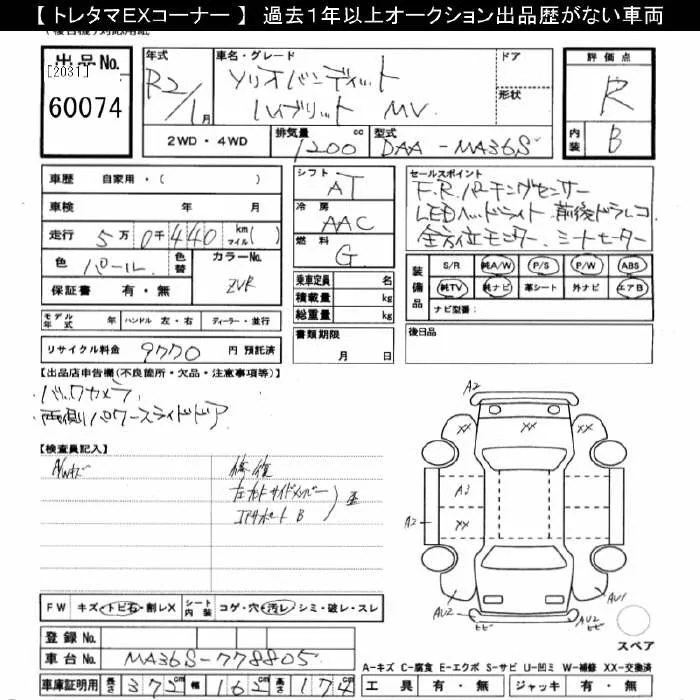 【 トレタマEXコーナー 】 過去1年以上オークション出品歴がない車両
出品No.
[2031]
60074
年式
R2/1月
車名・グレード
ソリオバンディット
HVブリット MV
ドア
形状
評価点
R
内装
B
2WD・4WD
排気量 1200 cc
型式 DAA-MA36S
車歴 自家用・( )
車検 年 月
走行 5万0千440 km マイル( )
色 パール
色替
カラーNo. ZVR
保証書 有・無
シフト AT
冷房 AAC
燃料 G
乗車定員 名
積載量 kg
総重量 kg
セールスポイント
F.R.パーキングセンサー
LEDヘッドライト 前後ドラレコ
全方位モニター、シートヒーター
装備品
S/R 純A/W P/S P/W ABS
純TV 純ナビ 革シート 外ナビ エアB
ナビ型番:
モデル年式 年 ハンドル 左・右 ディーラー・並行
リサイクル料金 9770 円 預託済
書類期限
月 日
後日品
【出品店申告欄(不良箇所・欠品・注意事項等)】
・バックカメラ
・両側パワースライドドア
【検査員記入】
A/Wキズ
修復
左右フロントサイドメンバー
コアサポート B
歪
A2
XX XX XX
A2
A2
XX
AU2
ヒビ
AU2
ヒビ
AU1
スペア
FW キズ・トビ石・割レX
シート内装 コゲ・穴・汚レ・シミ・破レ・スレ
登録No.
車台No. MA36S-778805
車庫証明用 長さ 372 cm 幅 162 cm 高さ 174 cm
A-キズ C-腐食 E-エクボ S-サビ U-凹ミ W-補修 XX-交換済
工具 有・無 ジャッキ 有・無